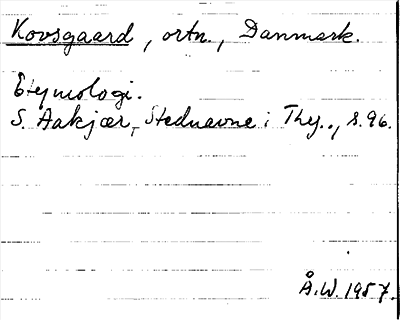 Kovsgaard, ortn., Danmark.
Etymologi.
S. Aakjær, Stednavne i Thy., s.96.
Å.W. 1957.